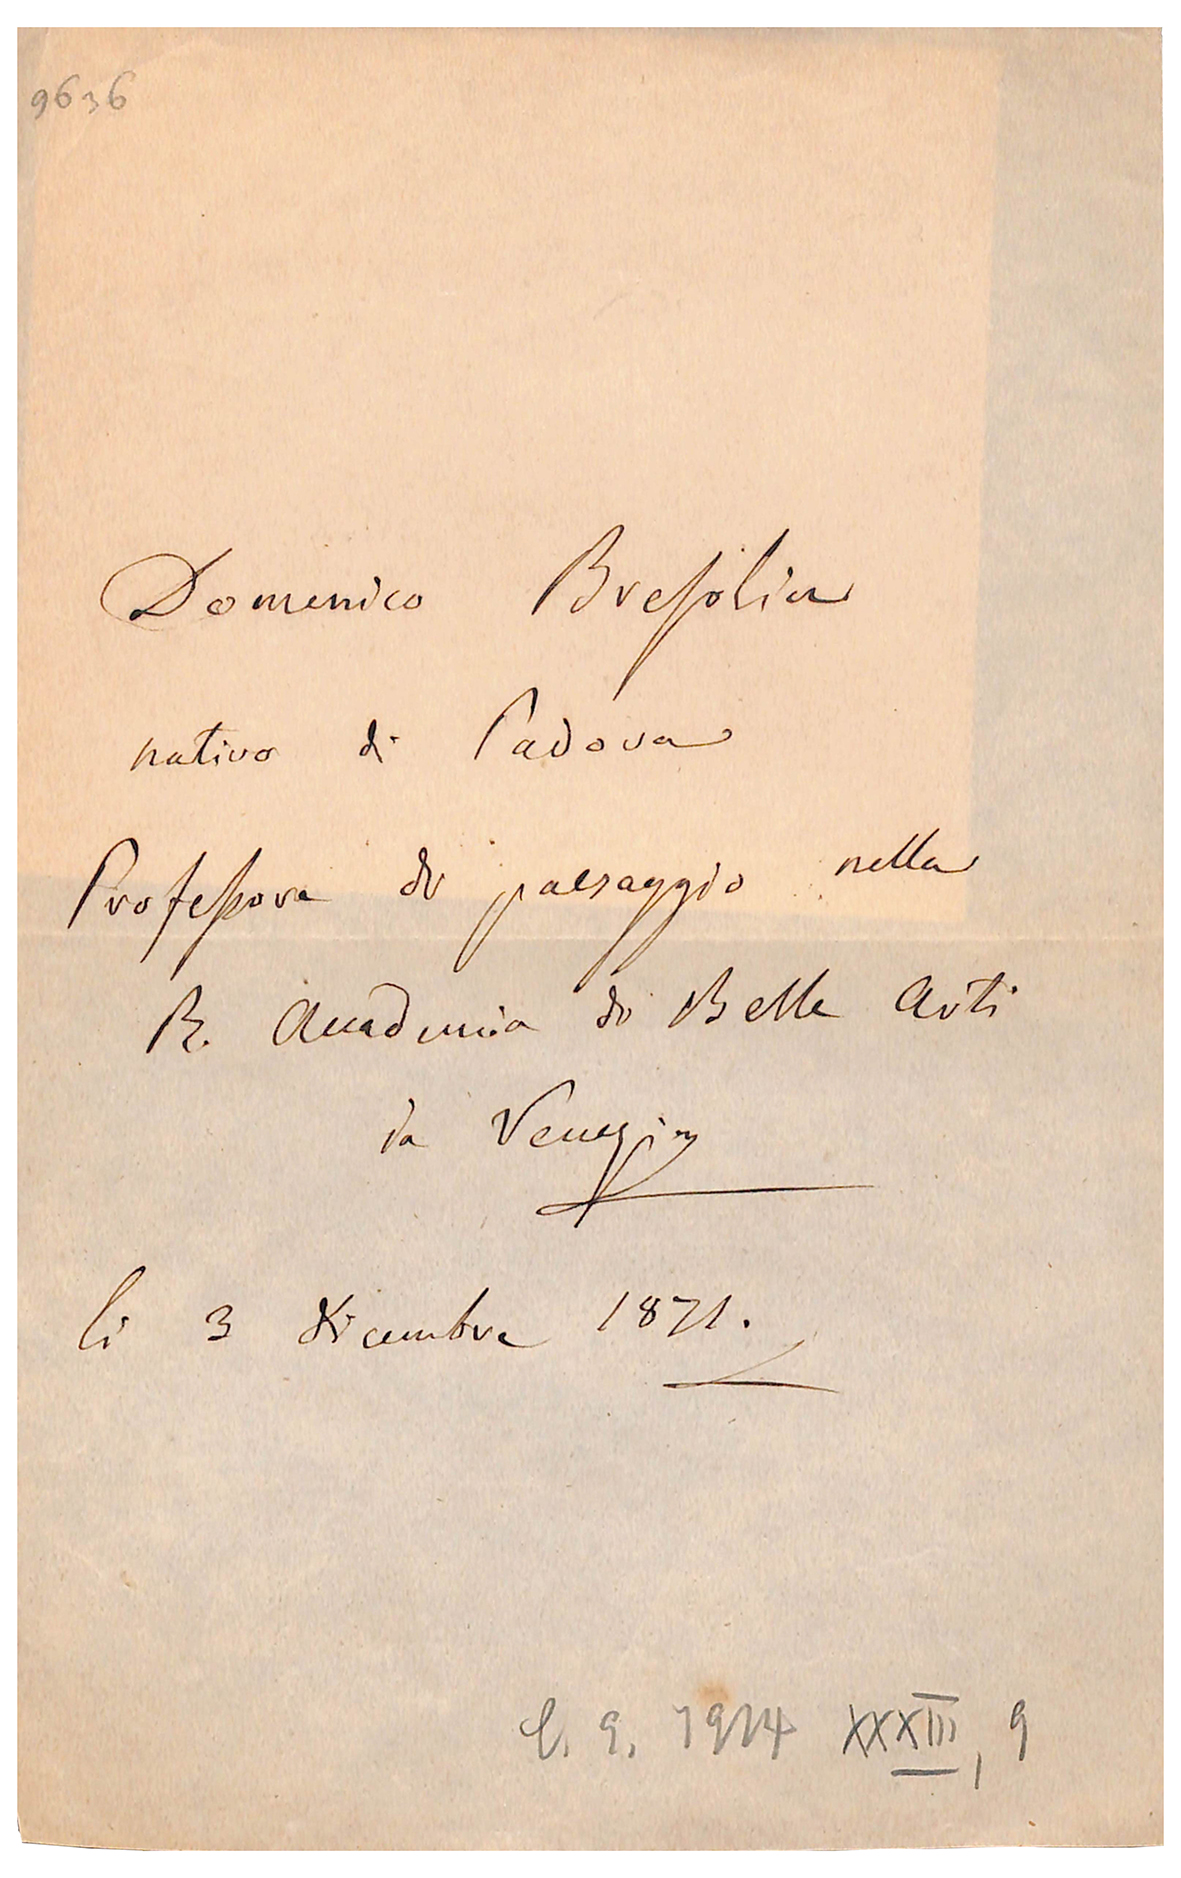 9636
Domenico Breſsolin
nativo di Padova
Profeſsore di paesaggio nella
R. Accademia di Belle Arti
in Venezia
li 3 dicembre 1871.
1914 XXXIII, 9